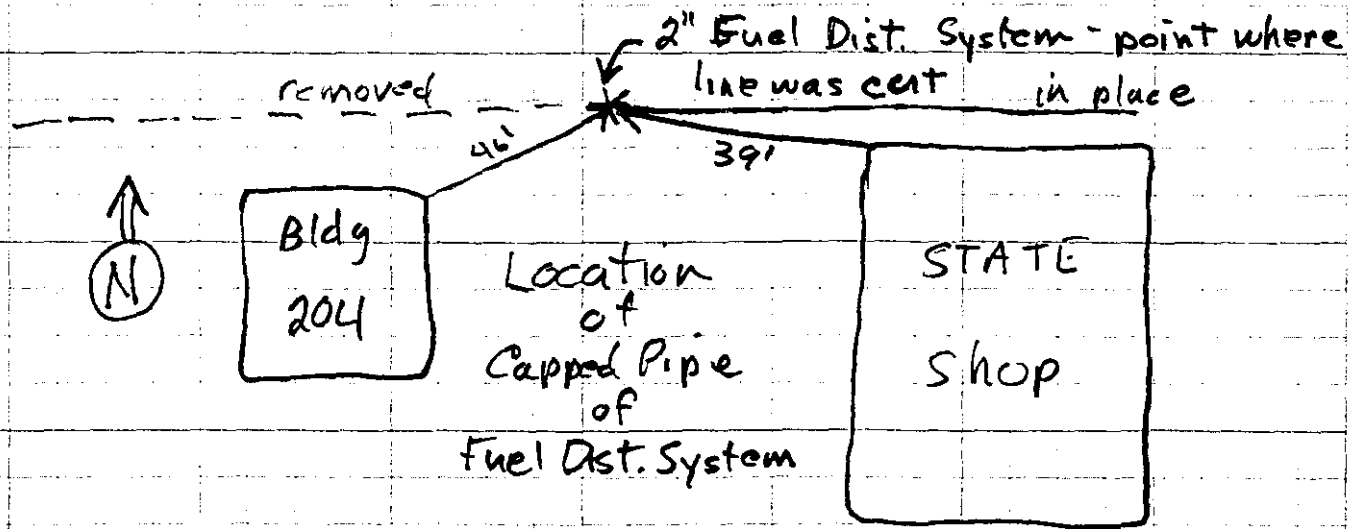 2" Fuel Dist. System - point where
line was cut in place
removed
46'
39'
N
Bldg
204
Location
of
Capped Pipe
of
Fuel Dist. System
STATE
Shop